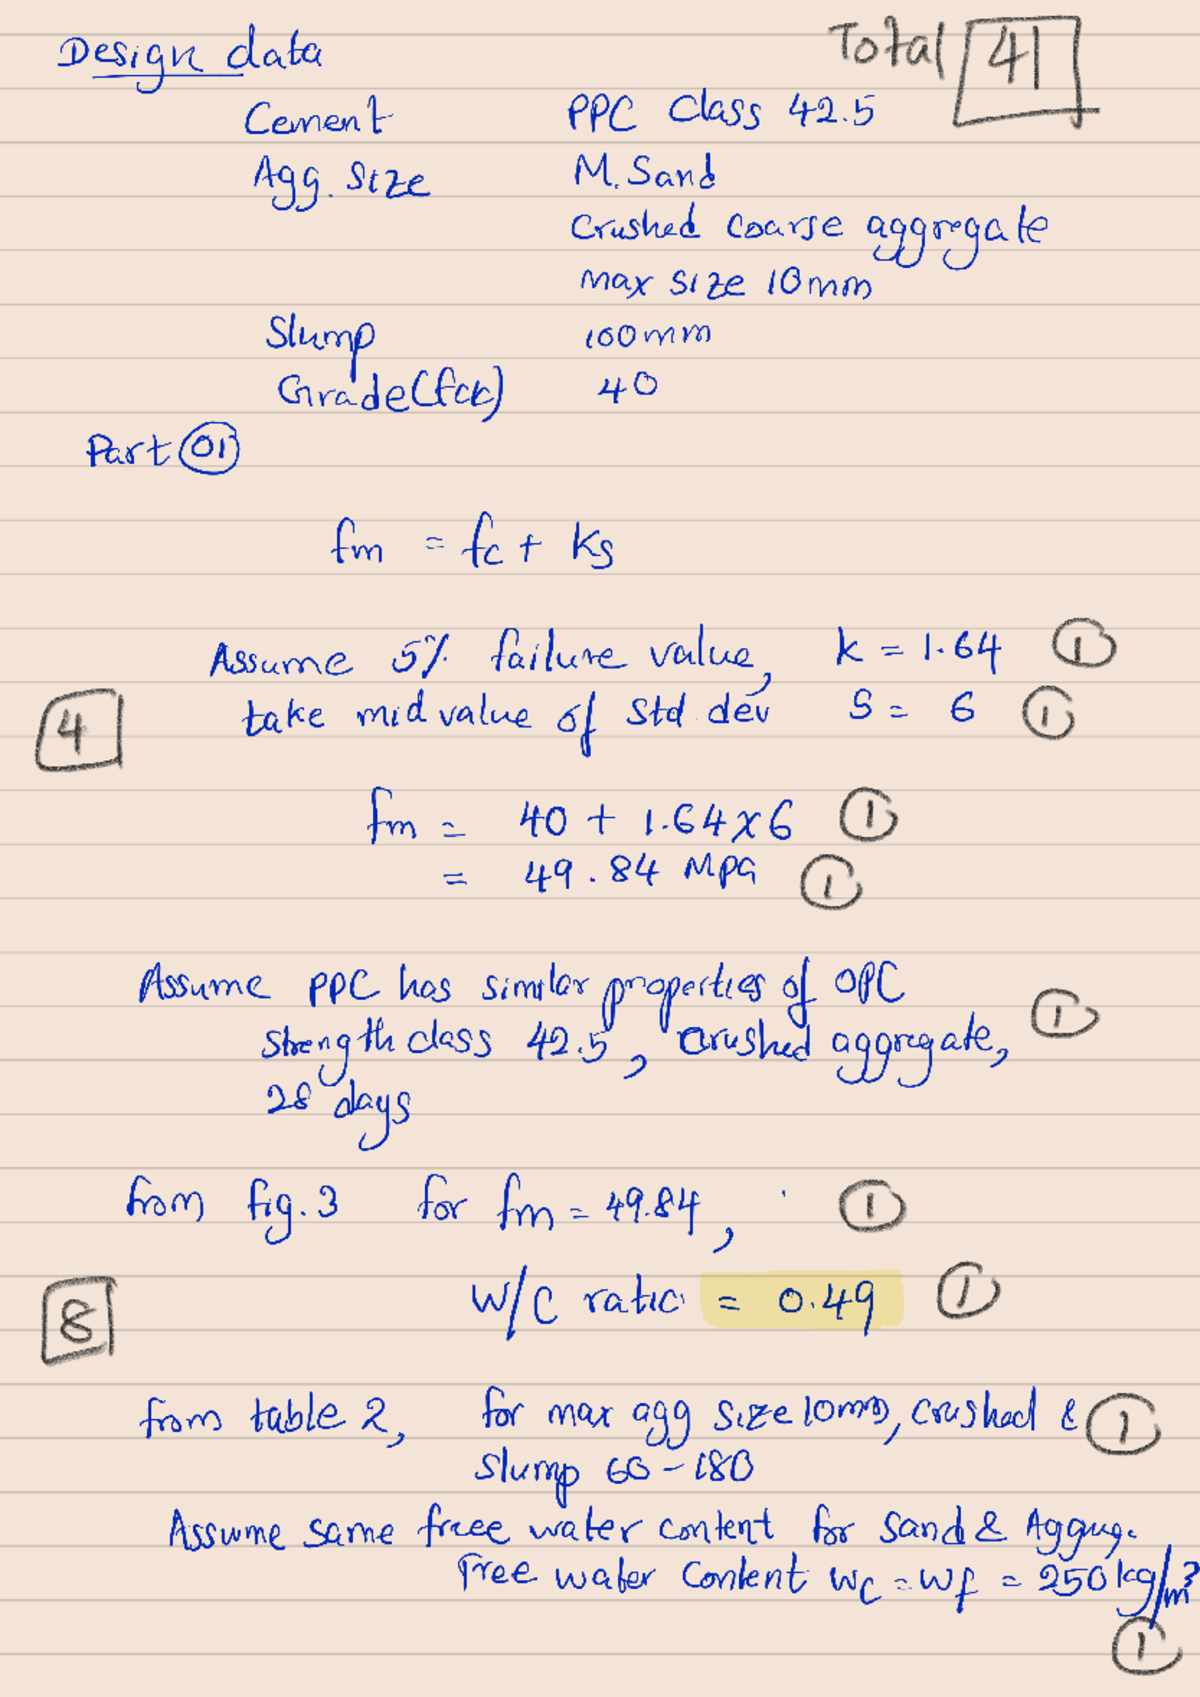 Design data
Total 41
Cement PPC Class 42.5
Agg. Size M. Sand
Crushed coarse aggregate
max size 10mm
Slump 100mm
Grade(fck) 40
Part 01
fm = fc + ks
Assume 5% failure value, k = 1.64 1
4
take mid value of Std. dev S = 6 1
fm = 40 + 1.64x6 1
= 49.84 MPa 1
Assume PPC has similar properties of OPC
Strength class 42.5, Crushed aggregate, 1
28 days
from fig. 3 for fm = 49.84, 1
W/C ratio = 0.49 1
8
from table 2, for max agg size 10mm, crushed & 1
Slump 60-180
Assume same free water content for Sand & Aggug.
Free water Content wc = wf = 250kg/m³
1